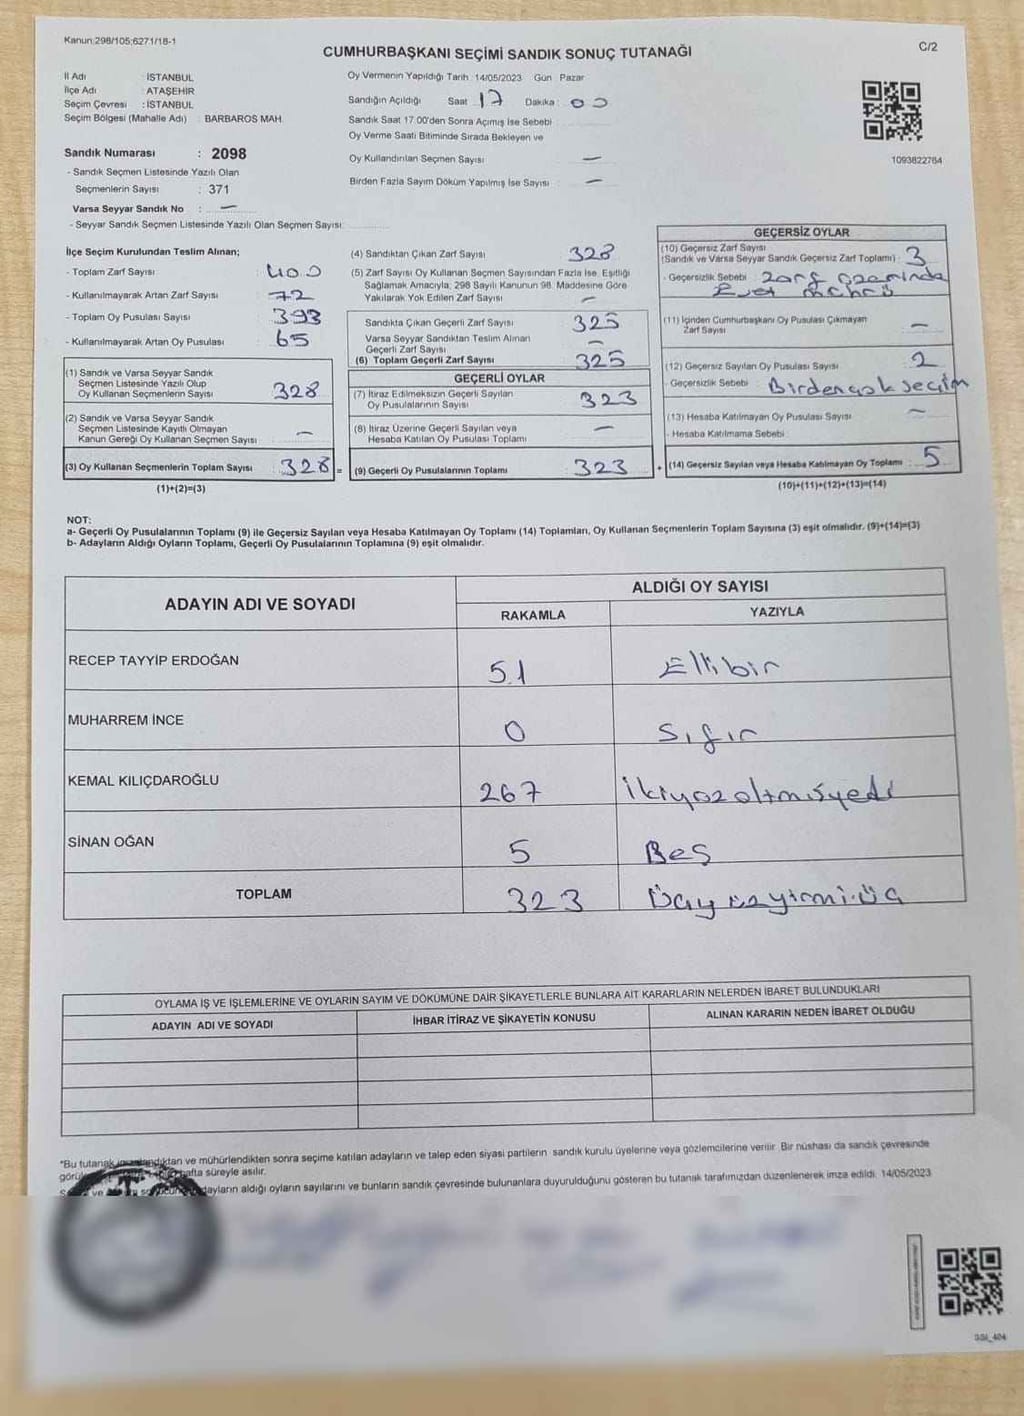 Kanun:298/105;6271/18-1
CUMHURBAŞKANI SEÇİMİ SANDIK SONUÇ TUTANAĞI
C/2
İl Adı : İSTANBUL
İlçe Adı : ATAŞEHİR
Seçim Çevresi : İSTANBUL
Seçim Bölgesi (Mahalle Adı) : BARBAROS MAH.
Sandık Numarası : 2098
- Sandık Seçmen Listesinde Yazılı Olan
Seçmenlerin Sayısı : 371
Varsa Seyyar Sandık No : —
- Seyyar Sandık Seçmen Listesinde Yazılı Olan Seçmen Sayısı:
Oy Vermenin Yapıldığı Tarih : 14/05/2023 Gün : Pazar
Sandığın Açıldığı Saat : 17 Dakika : 00
Sandık Saat 17.00'den Sonra Açımış İse Sebebi :
Oy Verme Saati Bitiminde Sırada Bekleyen ve
Oy Kullandırılan Seçmen Sayısı : —
Birden Fazla Sayım Döküm Yapılmış İse Sayısı : —
1093822764
İlçe Seçim Kurulundan Teslim Alınan;
- Toplam Zarf Sayısı : 400
- Kullanılmayarak Artan Zarf Sayısı : 72
- Toplam Oy Pusulası Sayısı : 393
- Kullanılmayarak Artan Oy Pusulası : 65
(1) Sandık ve Varsa Seyyar Sandık
Seçmen Listesinde Yazılı Olup
Oy Kullanan Seçmenlerin Sayısı : 328
(2) Sandık ve Varsa Seyyar Sandık
Seçmen Listesinde Kayıtlı Olmayan
Kanun Gereği Oy Kullanan Seçmen Sayısı : —
(3) Oy Kullanan Seçmenlerin Toplam Sayısı : 328 =
(1)+(2)=(3)
(4) Sandıktan Çıkan Zarf Sayısı : 328
(5) Zarf Sayısı Oy Kullanan Seçmen Sayısından Fazla İse, Eşitliği
Sağlamak Amacıyla; 298 Sayılı Kanunun 98. Maddesine Göre
Yakılarak Yok Edilen Zarf Sayısı : —
Sandıkta Çıkan Geçerli Zarf Sayısı : 325
Varsa Seyyar Sandıktan Teslim Alınan
Geçerli Zarf Sayısı : —
(6) Toplam Geçerli Zarf Sayısı : 325
GEÇERLİ OYLAR
(7) İtiraz Edilmeksizin Geçerli Sayılan
Oy Pusulalarının Sayısı : 323
(8) İtiraz Üzerine Geçerli Sayılan veya
Hesaba Katılan Oy Pusulası Toplamı : —
(9) Geçerli Oy Pusulalarının Toplamı : 323 +
GEÇERSİZ OYLAR
(10) Geçersiz Zarf Sayısı
(Sandık ve Varsa Seyyar Sandık Geçersiz Zarf Toplamı) : 3
- Geçersizlik Sebebi : Zarf üzerinde
Evet mührü
(11) İçinden Cumhurbaşkanı Oy Pusulası Çıkmayan
Zarf Sayısı : —
(12) Geçersiz Sayılan Oy Pusulası Sayısı : 2
- Geçersizlik Sebebi : Birden çok seçim
(13) Hesaba Katılmayan Oy Pusulası Sayısı : —
- Hesaba Katılmama Sebebi :
(14) Geçersiz Sayılan veya Hesaba Katılmayan Oy Toplamı : 5
(10)+(11)+(12)+(13)=(14)
NOT:
a- Geçerli Oy Pusulalarının Toplamı (9) ile Geçersiz Sayılan veya Hesaba Katılmayan Oy Toplamı (14) Toplamları, Oy Kullanan Seçmenlerin Toplam Sayısına (3) eşit olmalıdır. (9)+(14)=(3)
b- Adayların Aldığı Oyların Toplamı, Geçerli Oy Pusulalarının Toplamına (9) eşit olmalıdır.
ADAYIN ADI VE SOYADI
ALDIĞI OY SAYISI
RAKAMLA YAZIYLA
RECEP TAYYİP ERDOĞAN 51 Ellibir
MUHARREM İNCE 0 Sıfır
KEMAL KILIÇDAROĞLU 267 İkiyüzaltmışyedi
SİNAN OĞAN 5 Beş
TOPLAM 323 Üçyüzyirmiüç
OYLAMA İŞ VE İŞLEMLERİNE VE OYLARIN SAYIM VE DÖKÜMÜNE DAİR ŞİKAYETLERLE BUNLARA AİT KARARLARIN NELERDEN İBARET BULUNDUKLARI
ADAYIN ADI VE SOYADI İHBAR İTİRAZ VE ŞİKAYETİN KONUSU ALINAN KARARIN NEDEN İBARET OLDUĞU
*Bu tutanak ve mühürlendikten sonra seçime katılan adayların ve talep eden siyasi partilerin sandık kurulu üyelerine veya gözlemcilerine verilir. Bir nüshası da sandık çevresinde
hafta süreyle asılır.
adayların aldığı oyların sayılarını ve bunların sandık çevresinde bulunanlara duyurulduğunu gösteren bu tutanak tarafımızdan düzenlenerek imza edildi. 14/05/2023